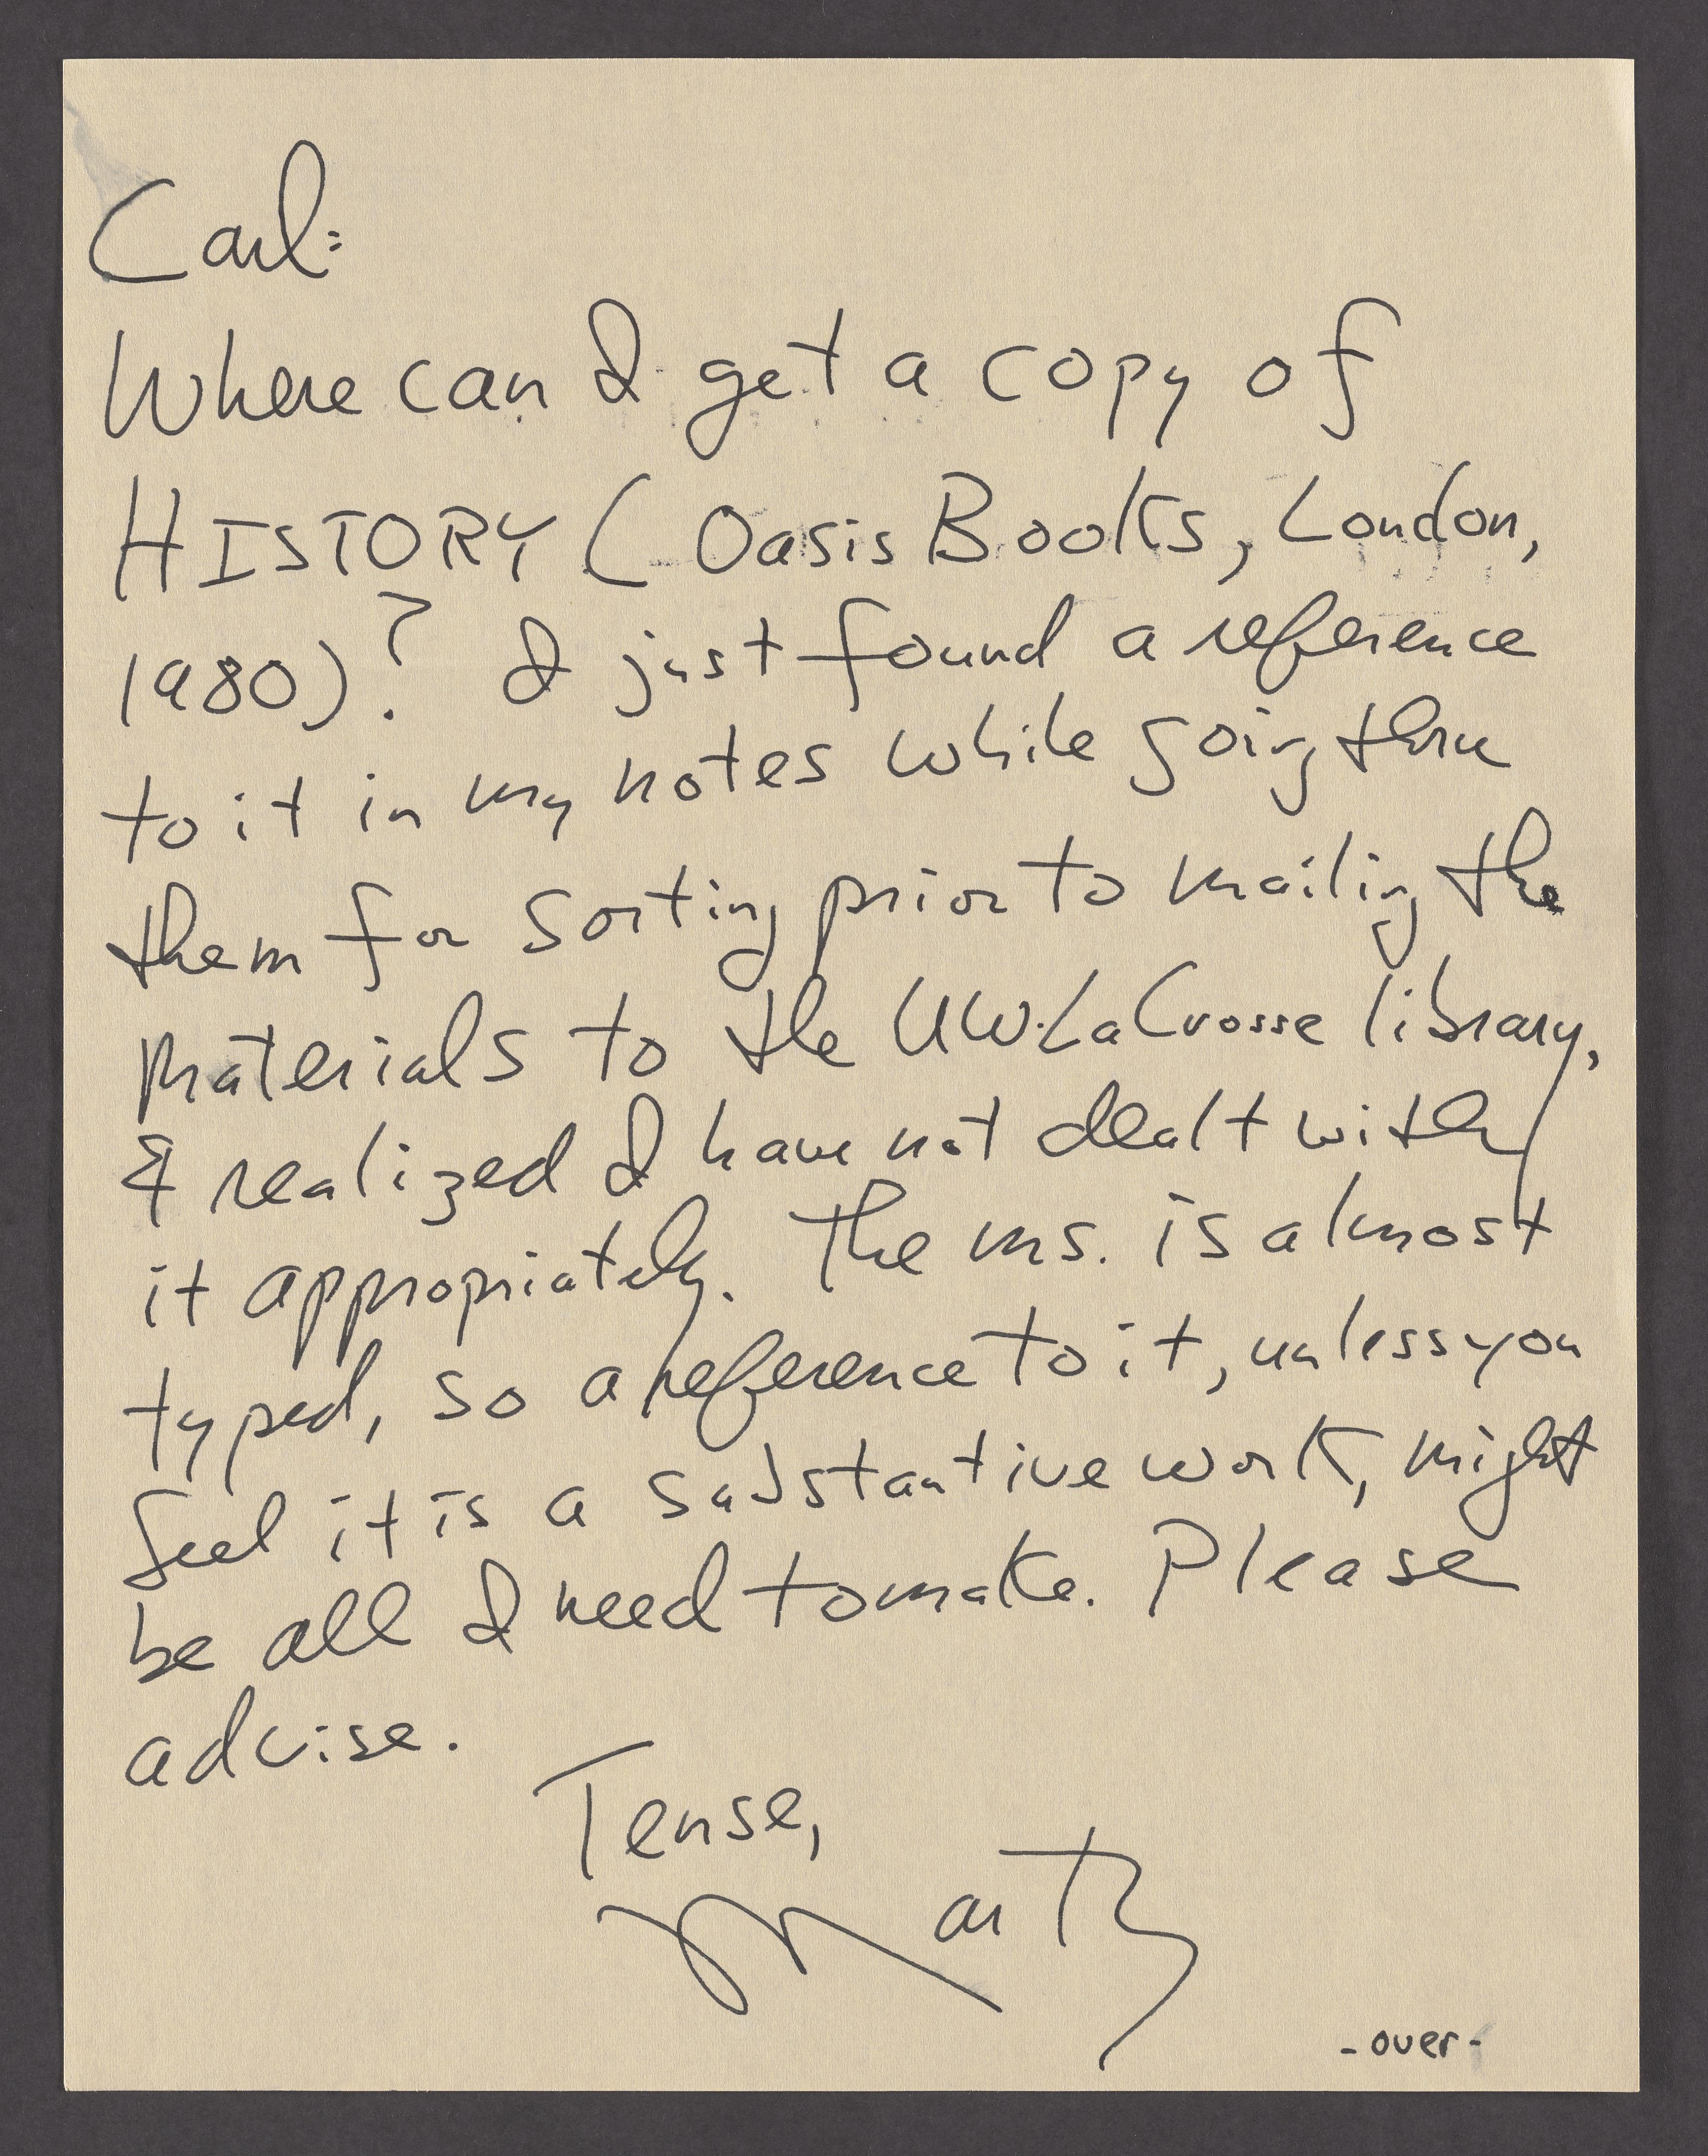 Carl:
Where can I get a copy of
HISTORY (Oasis Books, London,
1980)? I just found a reference
to it in my notes while going thru
them for sorting prior to mailing the
materials to the UW-LaCrosse library,
& realized I have not dealt with
it appropriately. The ms. is almost
typed, so a reference to it, unless you
feel it is a substantive work, might
be all I need to make. Please
advise.
Tense,
Marty
-over-